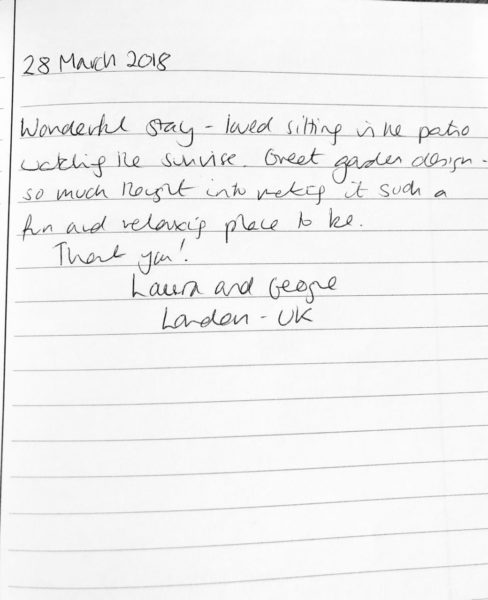 28 March 2018
Wonderful stay - loved sitting in the patio
watching the sunrise. Great garden design -
so much thought into making it such a
fun and relaxing place to be.
Thank you!
Laura and George
London - UK